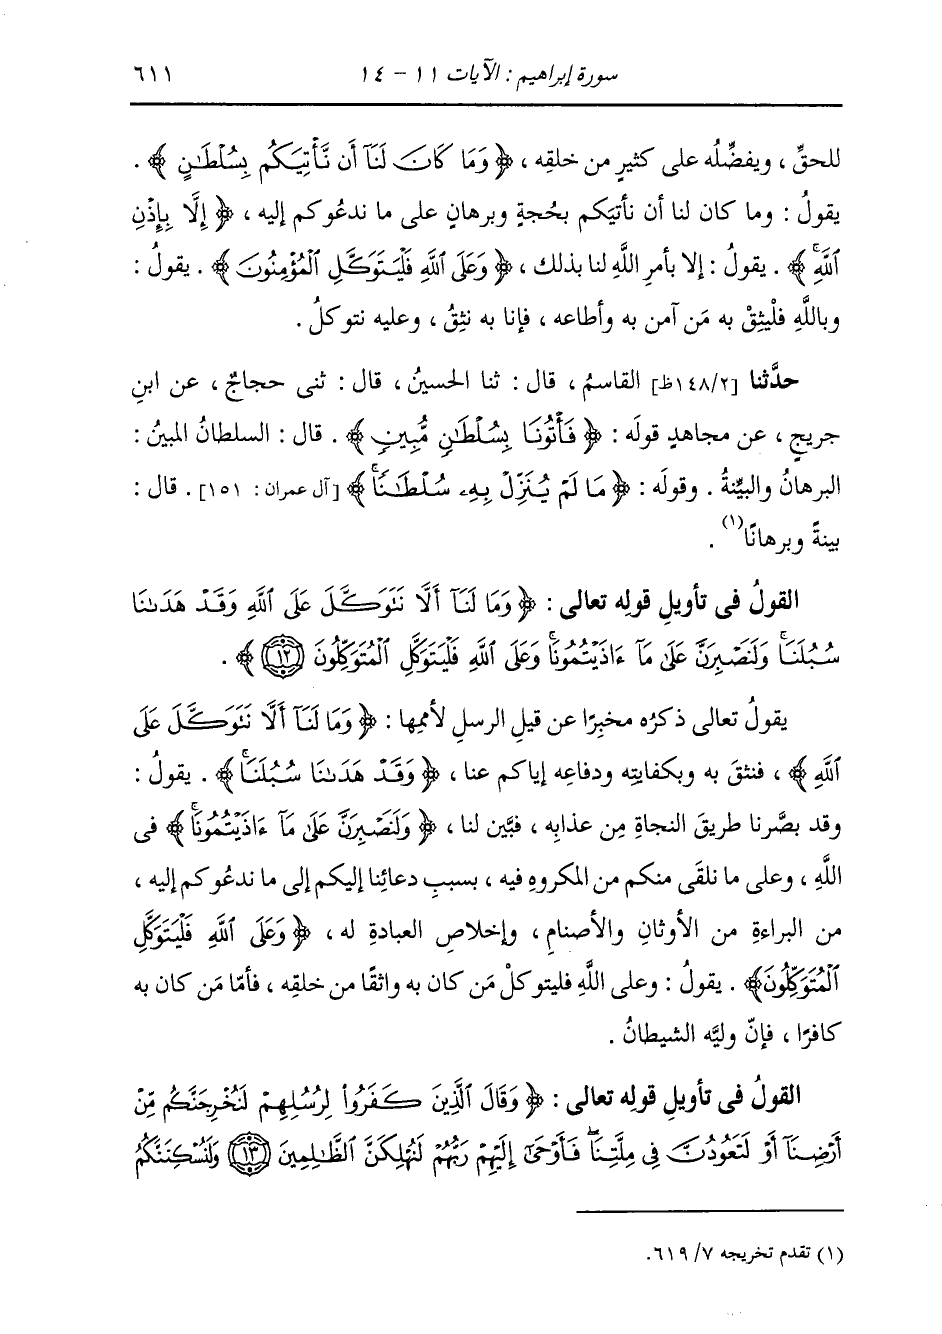 سورة إبراهيم : الآيات ١١ - ١٤ ٦١١
للحقِّ ، ويفضِّلُه على كثيرٍ من خلقِه ، ﴿ وَمَا كَانَ لَنَآ أَن نَّأْتِيَكُم بِسُلْطَٰنٍ ﴾ .
يقولُ : وما كان لنا أن نأتيَكم بحُجةٍ وبرهانٍ على ما ندعُوكم إليه ، ﴿ إِلَّا بِإِذْنِ
ٱللَّهِ ۚ ﴾ . يقولُ : إلا بأمرِ اللَّهِ لنا بذلك ، ﴿ وَعَلَى ٱللَّهِ فَلْيَتَوَكَّلِ ٱلْمُؤْمِنُونَ ﴾ . يقولُ :
وباللَّهِ فلْيثِقْ به مَن آمن به وأطاعه ، فإنا به نثِقُ ، وعليه نتوكلُ .
حدَّثنا [١٤٨/٢ظ] القاسمُ ، قال : ثنا الحسينُ ، قال : ثنى حجاجٌ ، عن ابنِ
جريجٍ ، عن مجاهدٍ قولَه : ﴿ فَأْتُونَا بِسُلْطَٰنٍ مُّبِينٍ ﴾ . قال : السلطانُ المبينُ :
البرهانُ والبيِّنةُ . وقولَه : ﴿ مَا لَمْ يُنَزِّلْ بِهِۦ سُلْطَٰنًا ۚ ﴾ [آل عمران : ١٥١] . قال :
بينةً وبرهانًا(١) .
القولُ فى تأويلِ قولِه تعالى : ﴿ وَمَا لَنَآ أَلَّا نَتَوَكَّلَ عَلَى ٱللَّهِ وَقَدْ هَدَىٰنَا
سُبُلَنَا ۚ وَلَنَصْبِرَنَّ عَلَىٰ مَآ ءَاذَيْتُمُونَا ۚ وَعَلَى ٱللَّهِ فَلْيَتَوَكَّلِ ٱلْمُتَوَكِّلُونَ ١٢ ﴾ .
يقولُ تعالى ذكرُه مخبِرًا عن قيلِ الرسلِ لأممِها : ﴿ وَمَا لَنَآ أَلَّا نَتَوَكَّلَ عَلَى
ٱللَّهِ ﴾ ، فنثقَ به وبكفايتِه ودفاعِه إياكم عنا ، ﴿ وَقَدْ هَدَىٰنَا سُبُلَنَا ۚ ﴾ . يقولُ :
وقد بصَّرنا طريقَ النجاةِ مِن عذابِه ، فبَّين لنا ، ﴿ وَلَنَصْبِرَنَّ عَلَىٰ مَآ ءَاذَيْتُمُونَا ۚ ﴾ فى
اللَّهِ ، وعلى ما نلقَى منكم من المكروهِ فيه ، بسببِ دعائِنا إليكم إلى ما ندعُوكم إليه ،
من البراءةِ من الأوثانِ والأصنامِ ، وإخلاصِ العبادةِ له ، ﴿ وَعَلَى ٱللَّهِ فَلْيَتَوَكَّلِ
ٱلْمُتَوَكِّلُونَ ﴾ . يقولُ : وعلى اللَّهِ فليتوكلْ مَن كان به واثقًا من خلقِه ، فأمّا مَن كان به
كافرًا ، فإنّ وليَّه الشيطانُ .
القولُ فى تأويلِ قولِه تعالى : ﴿ وَقَالَ ٱلَّذِينَ كَفَرُواْ لِرُسُلِهِمْ لَنُخْرِجَنَّكُم مِّنْ
أَرْضِنَآ أَوْ لَتَعُودُنَّ فِى مِلَّتِنَا ۖ فَأَوْحَىٰٓ إِلَيْهِمْ رَبُّهُمْ لَنُهْلِكَنَّ ٱلظَّٰلِمِينَ ١٣ وَلَنُسْكِنَنَّكُمُ
(١) تقدم تخريجه ٧/ ٦١٩.